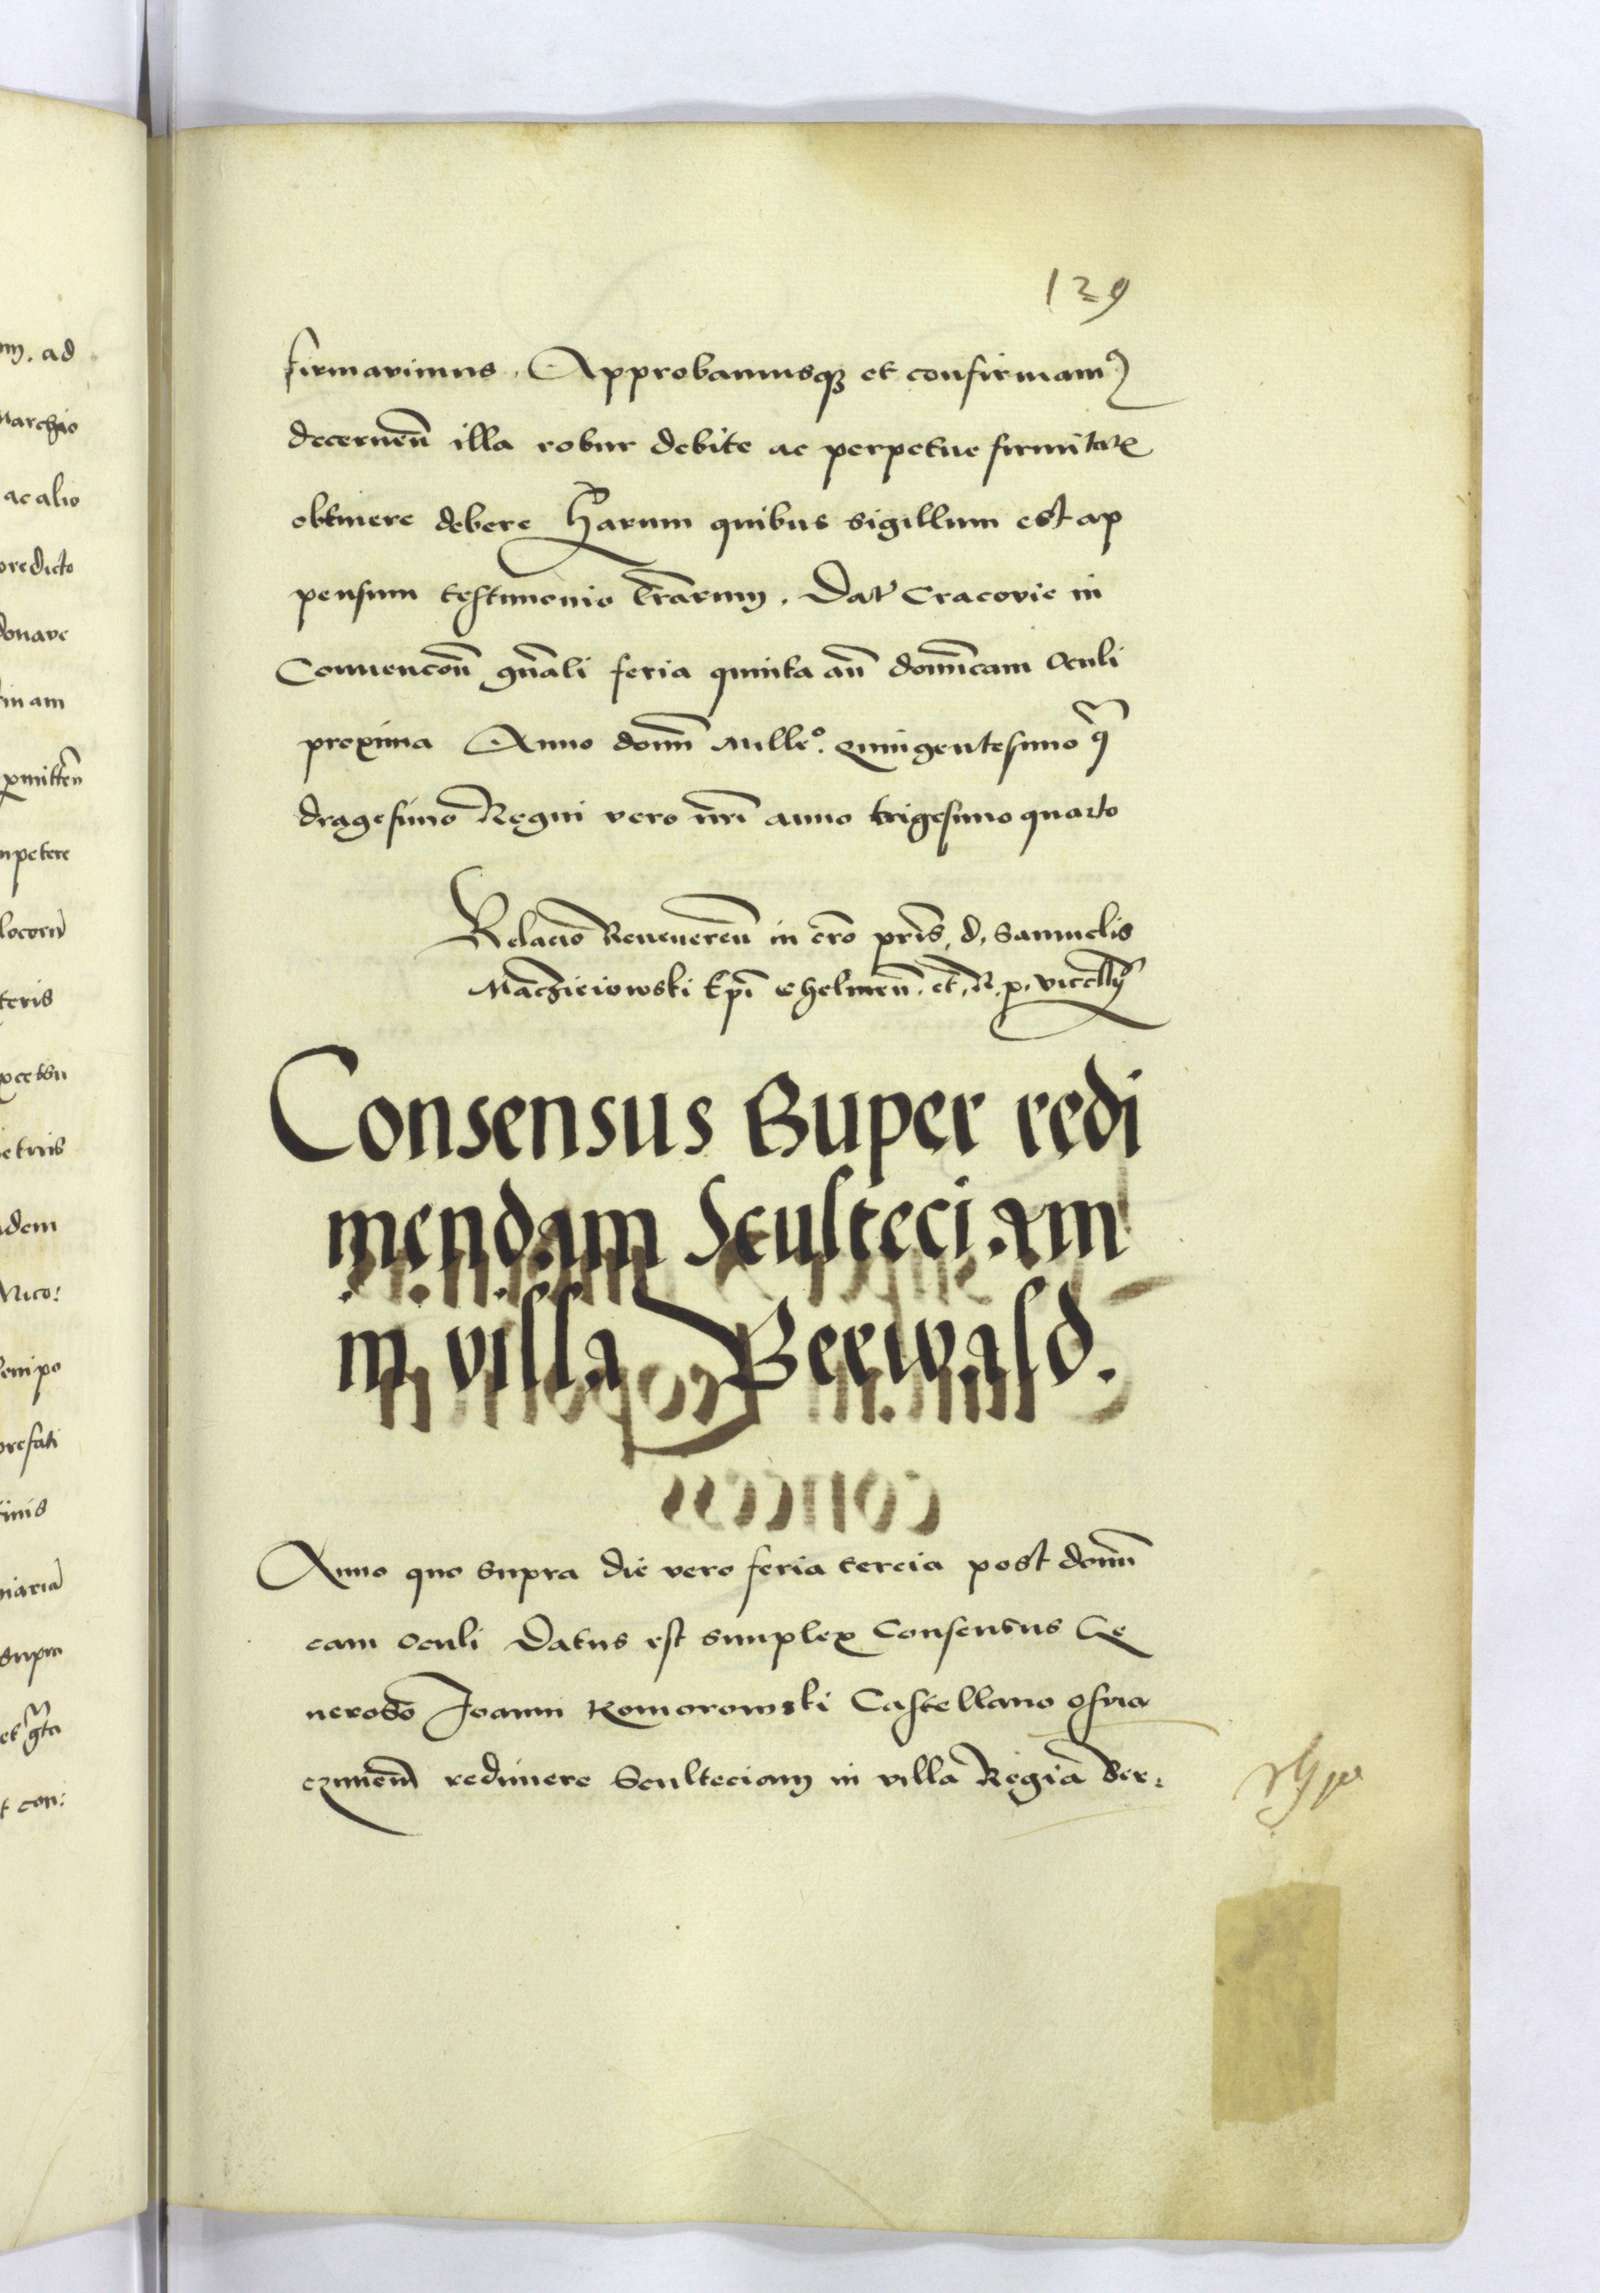 129
firmavimus. Approbamusq3 et confirmamꝰ
decernen̄ illa robur debite ac perpetue firmitatis
obtinere debere Harum quibus sigillum est ap
pensum testimonio lr̄arum. Dat̄ Cracovie in
Convencōn gn̄ali feria quinta an̄ domīcam Oculi
proxima Anno domī Mille.º Quingentesimo qᷓ
dragesimo Regni vero nr̄i anno trigesimo quarto
Relacio Reueueren̄ in cr̄o pr̄is d. Samuelis
Maczieiowski Ep̄i Chelmen̄. et. R. p. vicecll̄ij
Consensus Super redi
mendam Sculteciam
in villa Berwald.
Anno quo supra die vero feria tercia post domī
cam Oculi Datus est simplex Consensus Ge
neroso Joanni Komorowski Castellano Osvia
czimen̄ redimere Sculteciam in villa Regia Ber:
m. ad
Marchio
ac alio
predicto
donare
inam
ꝑmitten̄
mpetere
locorū
teris
adem
Nico:
prefati
supra
et con: